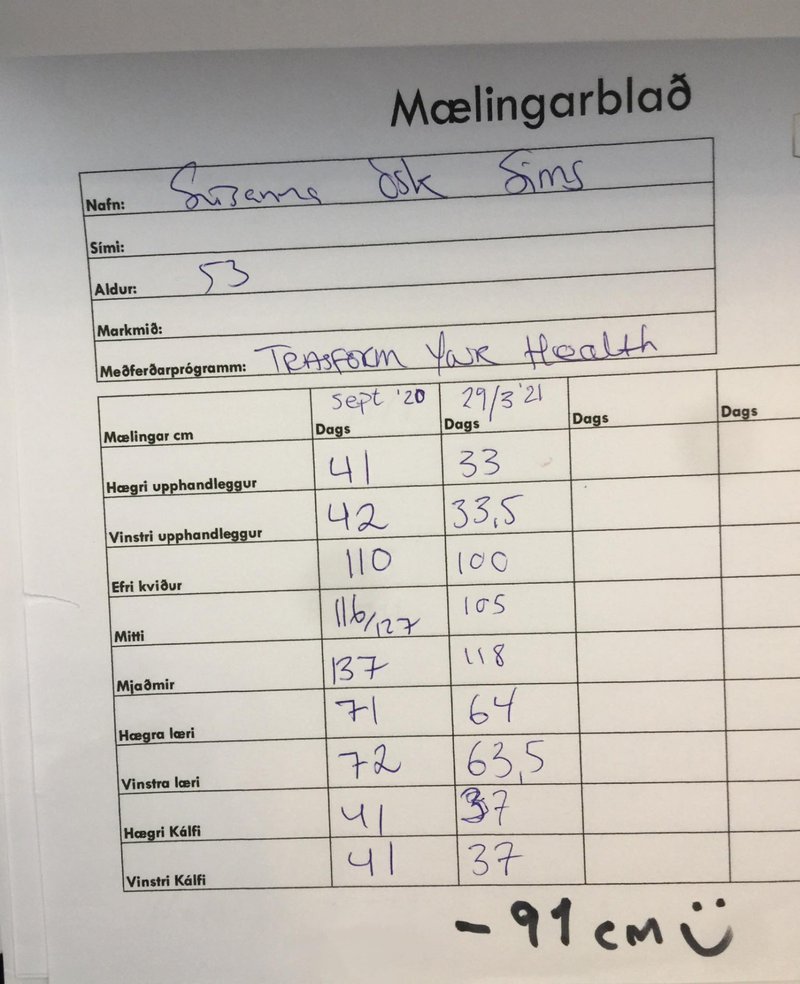 Mælingarblað
Nafn: Súsanna Ósk Sims
Sími:
Aldur: 53
Markmið:
Meðferðarprógramm: TRASFORM Your Health
Mælingar cm Sept '20 Dags 29/3 '21 Dags Dags Dags
Hægri upphandleggur 41 33
Vinstri upphandleggur 42 33,5
Efri kviður 110 100
Mitti 116/127 105
Mjaðmir 137 118
Hægra læri 71 64
Vinstra læri 72 63,5
Hægri Kálfi 41 37
Vinstri Kálfi 41 37
- 91 cm